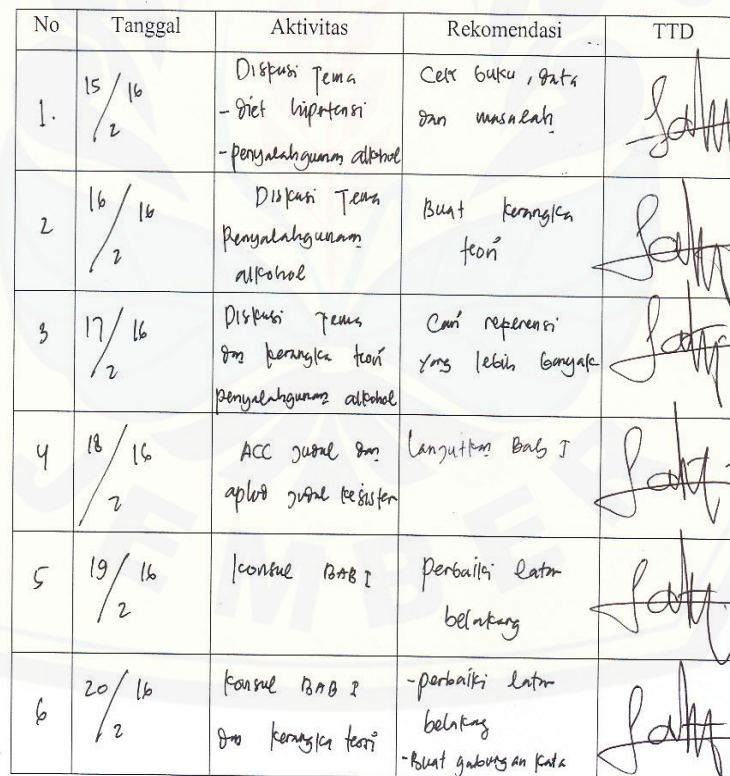 No Tanggal Aktivitas Rekomendasi TTD
1. 15/2 16
Diskusi Tema
- diet hipertensi
- penyalahgunaan alkohol
Cek buku, data
dan masalah
2 16/2 16
Diskusi Tema
Penyalahgunaan
alkohol
Buat kerangka
teori
3 17/2 16
Diskusi Tema
dan kerangka teori
penyalahgunaan alkohol
Cari reperensi
yang lebih banyak
4 18/2 16
ACC judul dan
aplod judul kesister
Lanjutkan Bab I
5 19/2 16
Konsul BAB I
perbaiki latar
belakang
6 20/2 16
Konsul BAB I
dan kerangka teori
- perbaiki latar
belakang
- Buat gabungan kata
JEMBER